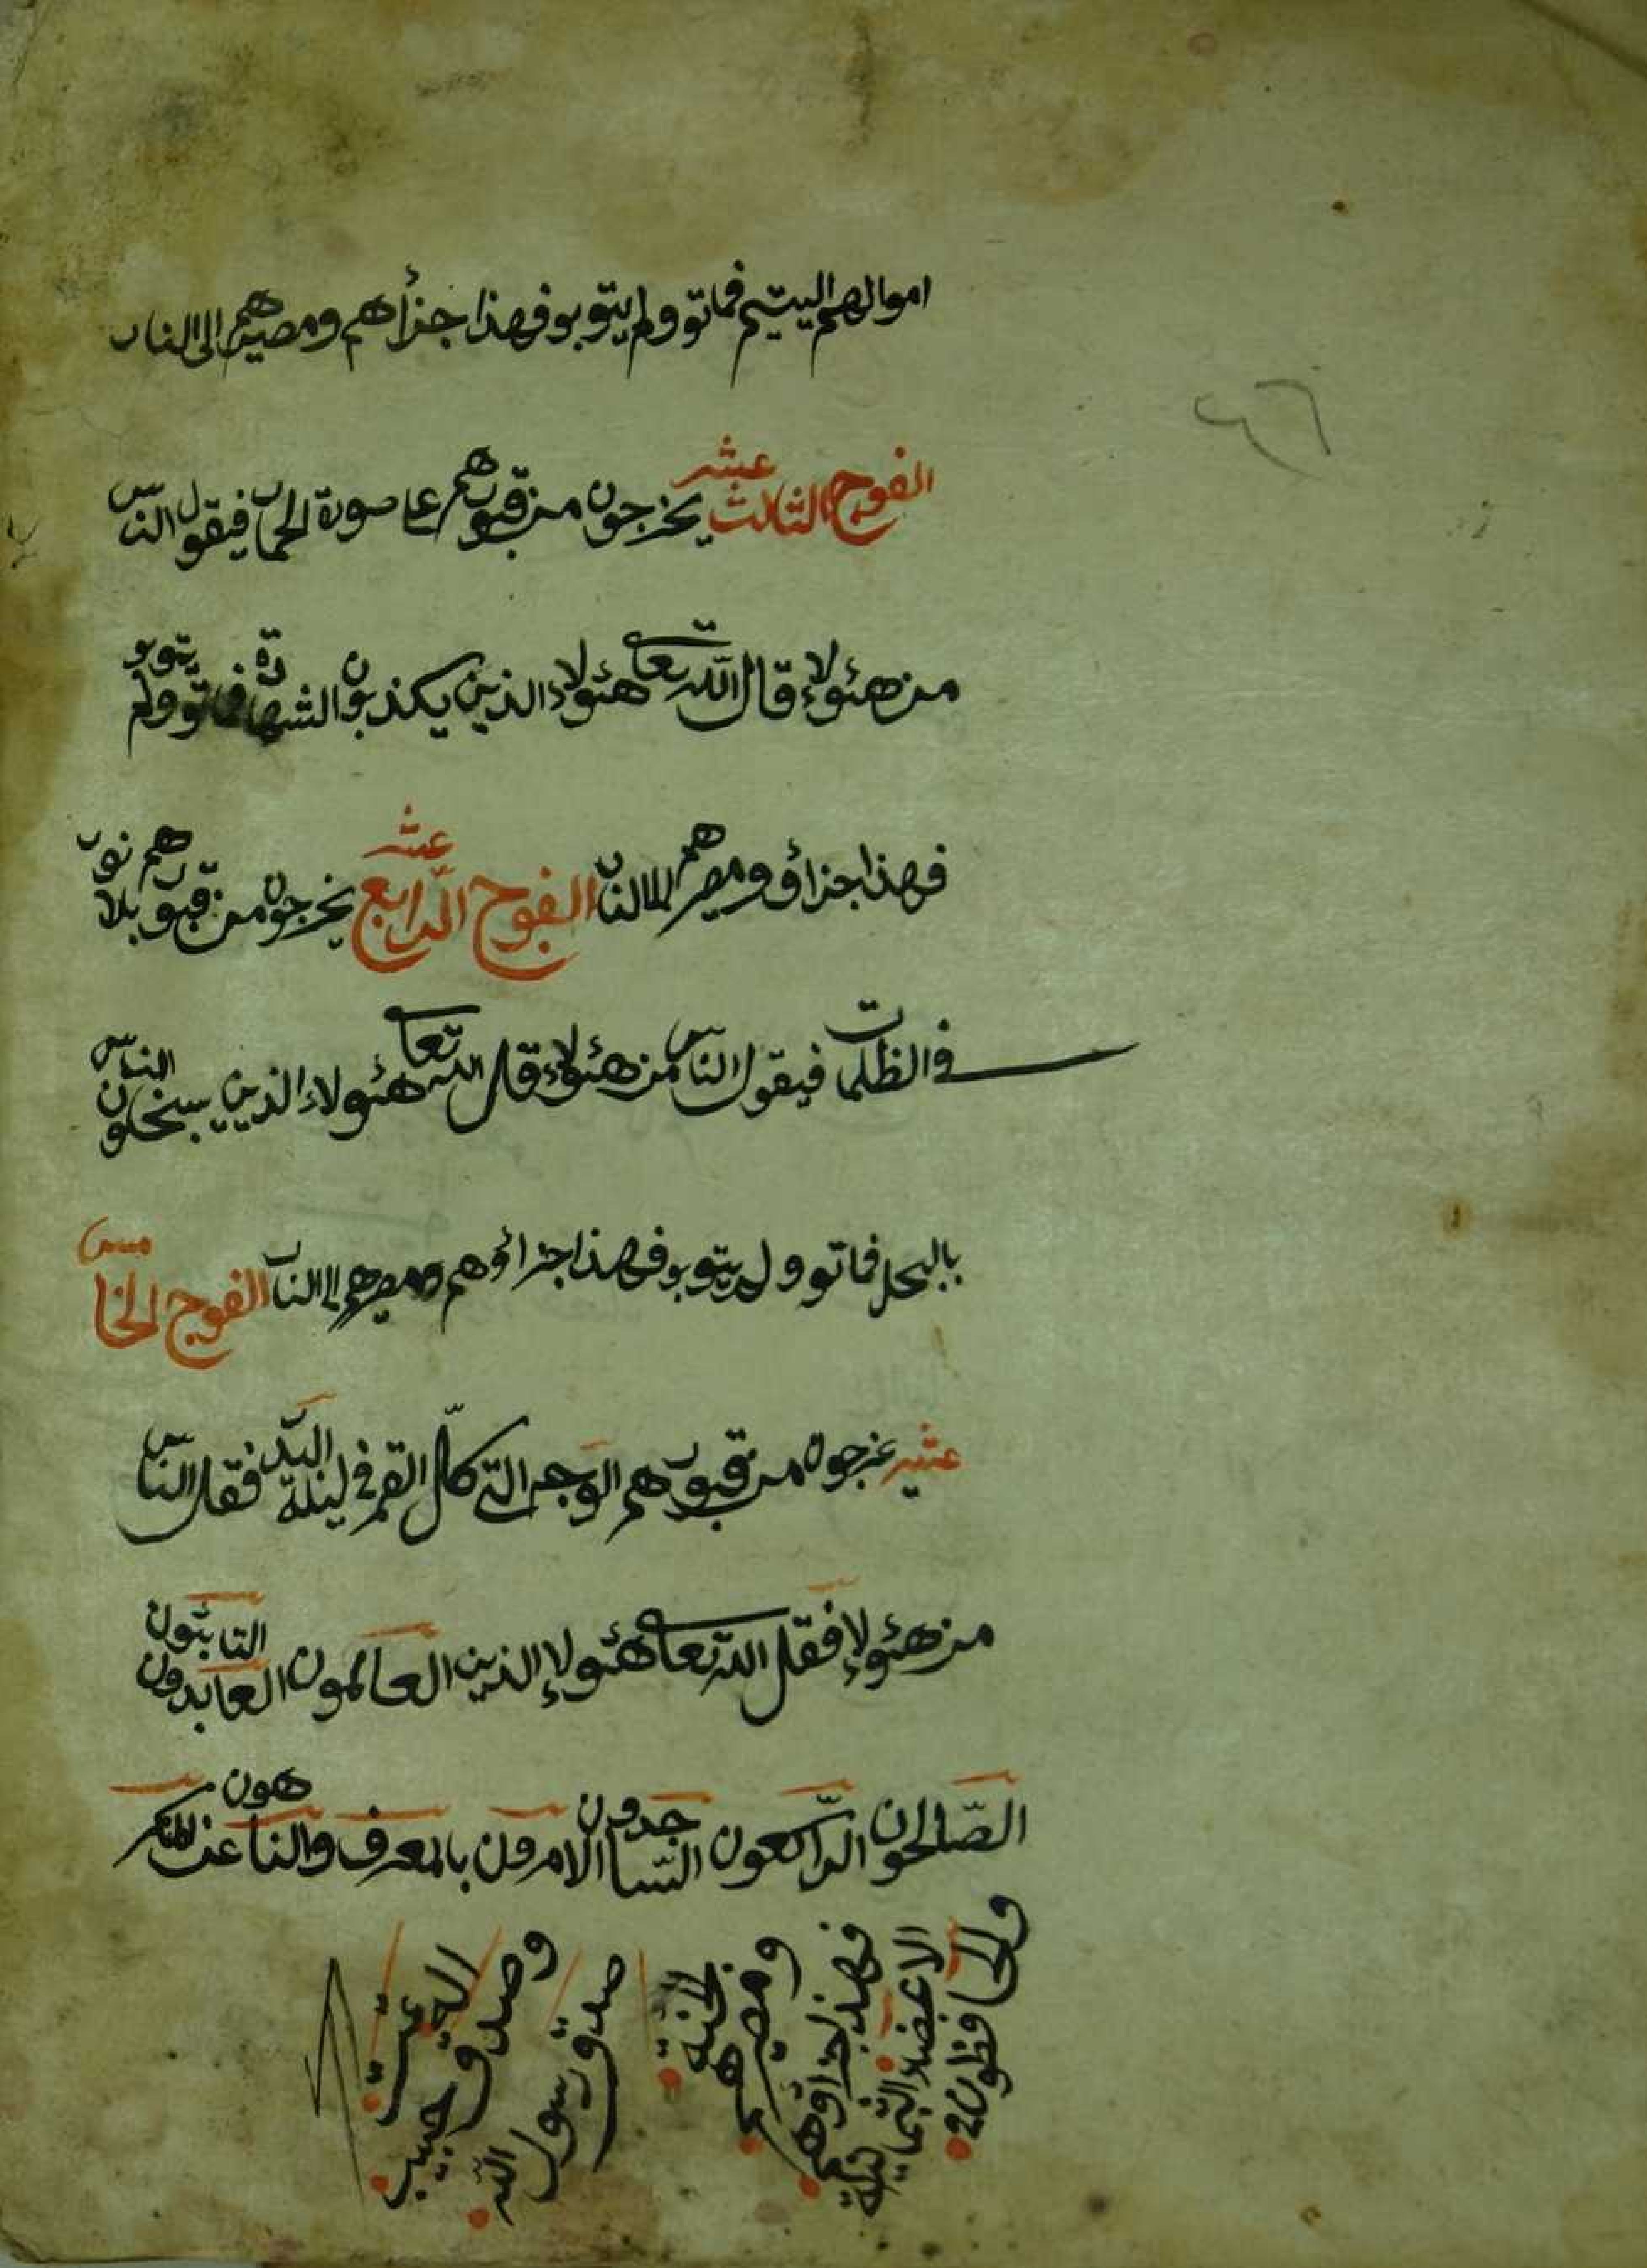 اموالهم اليتيم فماتو ولم يتوبو فهذا جزأهم ومصيرهم الى النار
الفوج الثالث عشر يخرجون من قبورهم عا صورة الحمار فيقول الناس
من هئولاء قال الله تعا هئولاء الذين يكذبون الشهادة فماتو ولم يتوبو
فهذا جزاؤ ومصرهم الا النار الفوج الرابع عشر يخرجون من قبورهم بلا نور
في الظلمات فيقول الناس من هئولاء قل الله تعا هئولاء الذين يبخلون الناس
بالبحل فماتو ولم يتوبو فهذا جزاؤهم ومصرهم الا النار الفوج الخامس
عشر يخرجون من قبورهم الوجه التى كال القمر في ليلة البدر فقل الناس
من هئولاء فقل الله تعا هئولاء الذين العالمون العابدون التائبون
الصالحون الراكعون الساجدون الامرون بالمعرف والناهون عن المنكر
والحافظون
الاعضاء الثمانية
فهذا جزاؤهم
ومصيرهم
الجنة
صدق رسول الله
وصدق حبيب
الله
تمت
٤٦